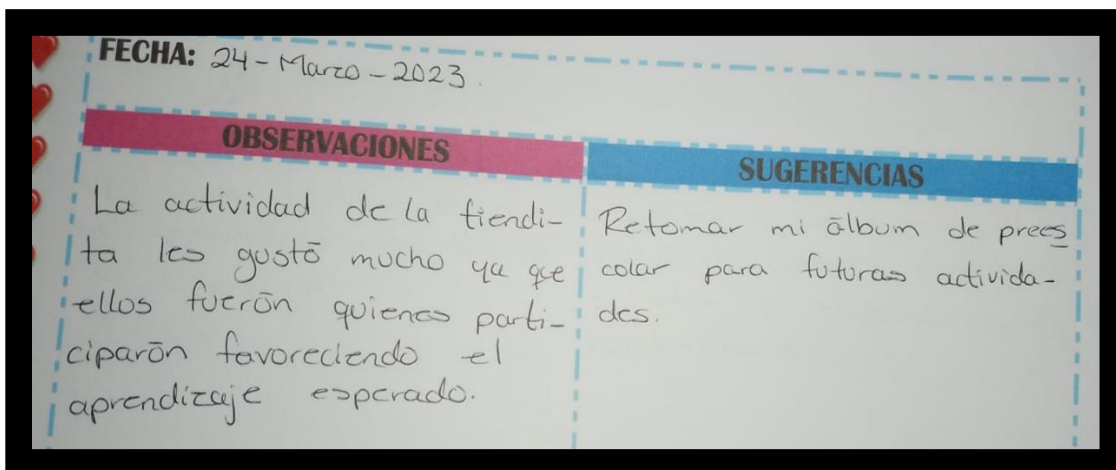 FECHA: 24-Marzo-2023.
OBSERVACIONES
La actividad de la tiendi-
ta les gustō mucho ya que
ellos fuerōn quienes parti-
ciparōn favoreciendo el
aprendizaje esperado.
SUGERENCIAS
Retomar mi ālbum de prees
colar para futuras activida-
des.